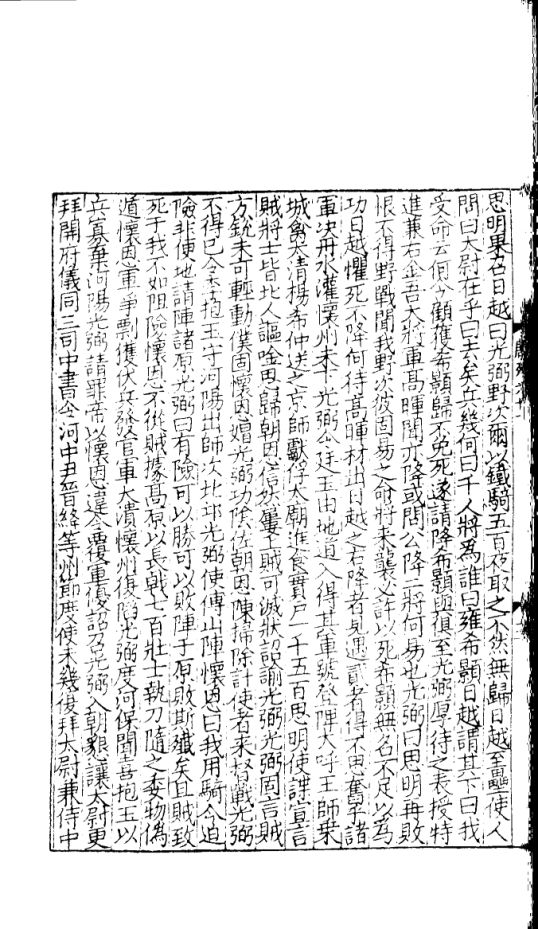 思明果召日越曰光弼野次爾以鐵騎五百夜取之不然無歸日越至壘使人
問曰太尉在乎曰去矣兵幾何曰千人將為誰曰雍希顥日越謂其下曰我
受命云何今顧獲希顥歸不免死遂請降希顥與俱至光弼厚待之表授特
進兼右金吾大將軍高暉聞亦降或問公降二將何易也光弼曰思明再敗
恨不得野戰聞我野次彼固易之命將來襲必許以死希顥無名不足以為
功日越懼死不降何待高暉材出日越之右降者見遇貳者得不思奮乎諸
軍決丹水灌懷州未下光弼令廷玉由地道入得其軍號登陴大呼王師乘
城禽太清楊希仲送之京師獻俘太廟進食實戶一千五百思明使諜宣言
賊將士皆北人謳唫思歸朝恩信然屢上賊可滅狀詔諭光弼光弼固言賊
方銳未可輕動僕固懷恩媢光弼功陰佐朝恩陳掃除計使者來督戰光弼
不得已令李抱玉守河陽出師次北邙光弼使傅山陣懷恩曰我用騎今迫
險非便地請陣諸原光弼曰有險可以勝可以敗陣于原敗斯殲矣且賊致
死于我不如阻險懷恩不從賊據高原以長戟七百壯士執刀隨之委物偽
遁懷恩軍爭剽獲伏兵發官軍大潰懷州復陷光弼度河保聞喜抱玉以
兵寡棄河陽光弼請罪帝以懷恩違令覆軍優詔召光弼入朝懇讓太尉更
拜開府儀同三司中書令河中尹晉絳等州節度使未幾復拜太尉兼侍中